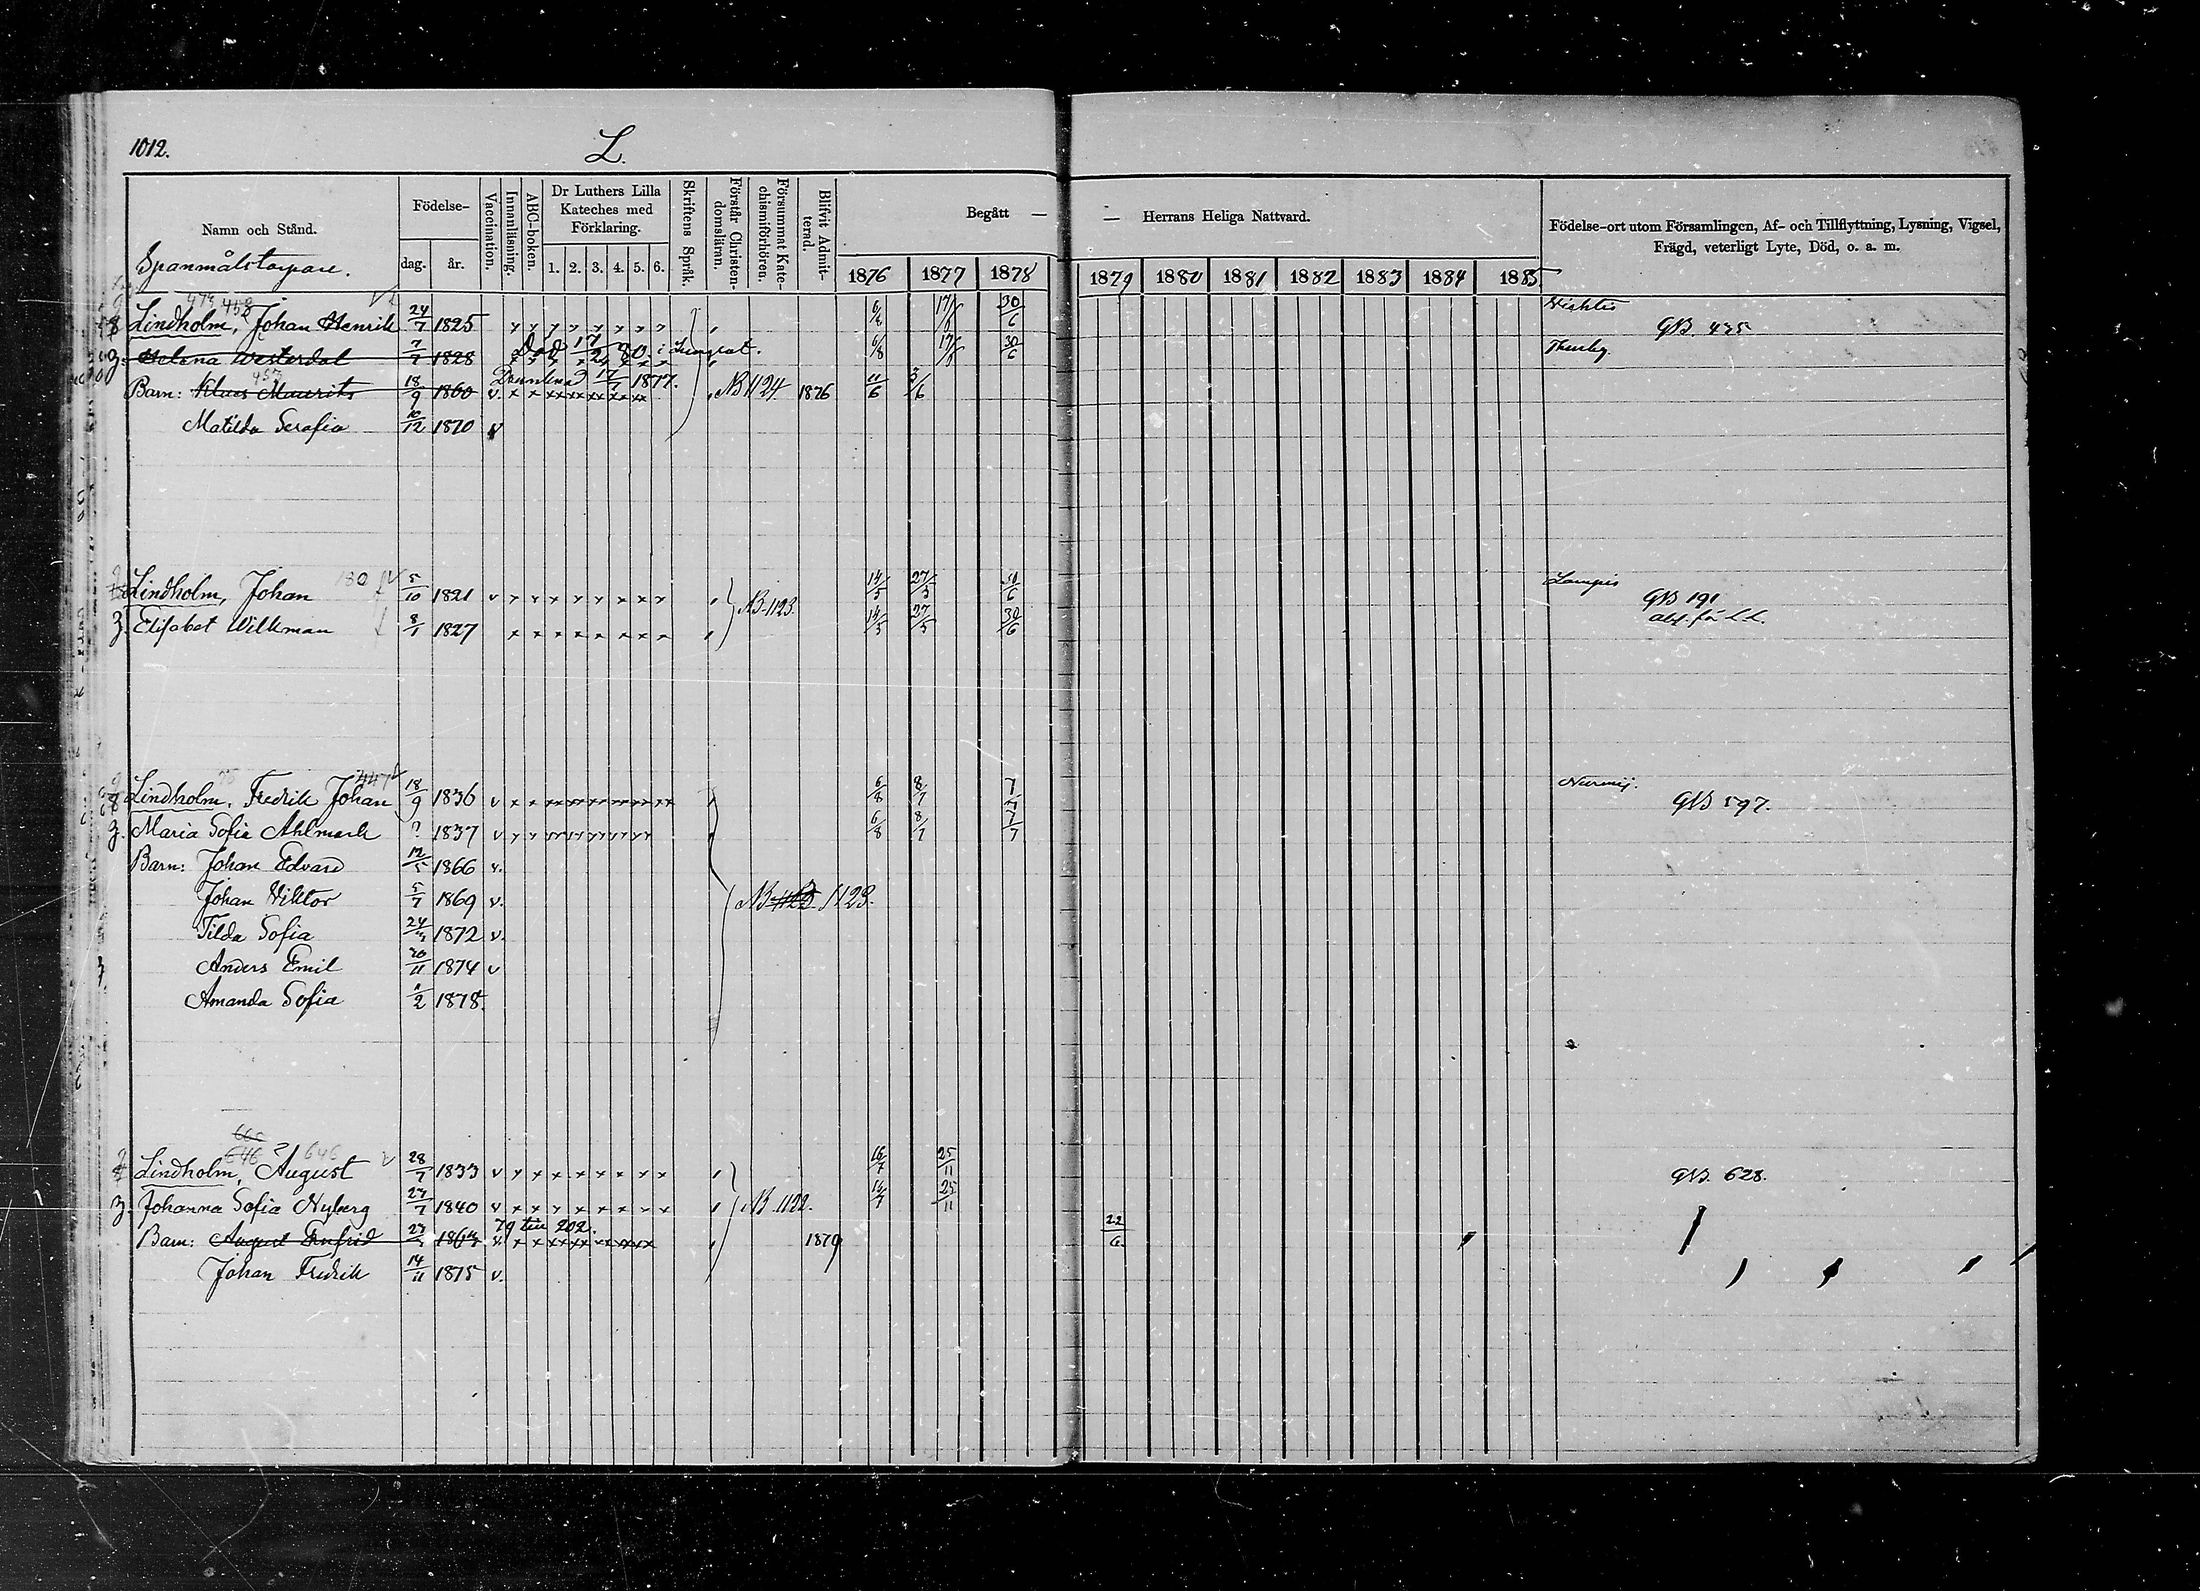 1012.
L.
Namn och Stånd.
Födelse-
dag. år.
Vaccination.
Innanläsning.
ABC-boken.
Dr Luthers Lilla Kateches med Förklaring.
1. 2. 3. 4. 5. 6.
Skriftens Språk.
Förstår Christen-domsläran.
Försummat Kate-chismiförhören.
Blifvit Admit-terad.
Begått — — Herrans Heliga Nattvard.
1876 1877 1878 1879 1880 1881 1882 1883 1884 1885
Födelse-ort utom Församlingen, Af- och Tillflyttning, Lysning, Vigsel, Frägd, veterligt Lyte, Död, o. a. m.
Spanmålstorpare.
Lindholm, Johan Henrik 24/7 1825 30/6 GB. 435
Helena Westerdal 7/7 1828 Död 17/2 80. i Lungsot. 6/8 30/6 Thusby.
Barn: Klaes Maurits 18/9 1860 v. Drunknad 17/7 1877. NB 1124 1876 11/6 3/6
Matilda Serafia 10/12 1870 v
Lindholm, Johan 180 5/10 1821 v 14/5 27/5 30/6 Lampis GB 191
Elisabet Wilkman 8/1 1827 NB 1123. 14/5 27/5 30/6
Lindholm, Fredrik Johan 447 18/9 1836 v 6/8 8/7 7/7 Nurmij. GB 597.
Maria Sofia Ahlmark ? 1837 v 6/8 8/7 7/7
Barn: Johan Edvard 12/5 1866 v.
Johan Viktor 5/7 1869 v. NB 1123 1123.
Tilda Sofia 24/3 1872 v.
Anders Emil 20/11 1874 v
Amanda Sofia 1/2 1878.
660
646 646
Lindholm, August 28/7 1833 v 15/7 25/11 GB. 628.
Johanna Sofia Nyberg 27/7 1840 v NB 1122. 15/7 25/11
Barn: August Enfrid 79 till 202. 1879 22/6.
Johan Fredrik 14/11 1875 v.